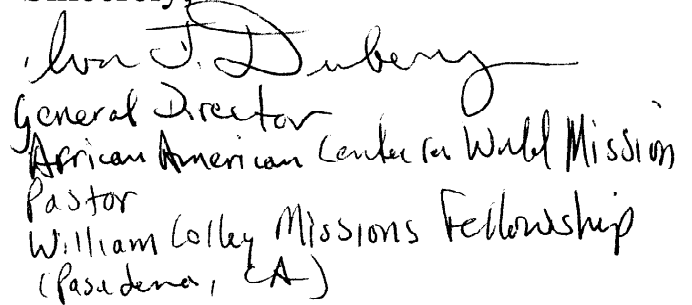 Sincerely,
Ivor J. Duberry
General Director
African American Center for World Mission
Pastor
William Colley Missions Fellowship
(Pasadena, CA)